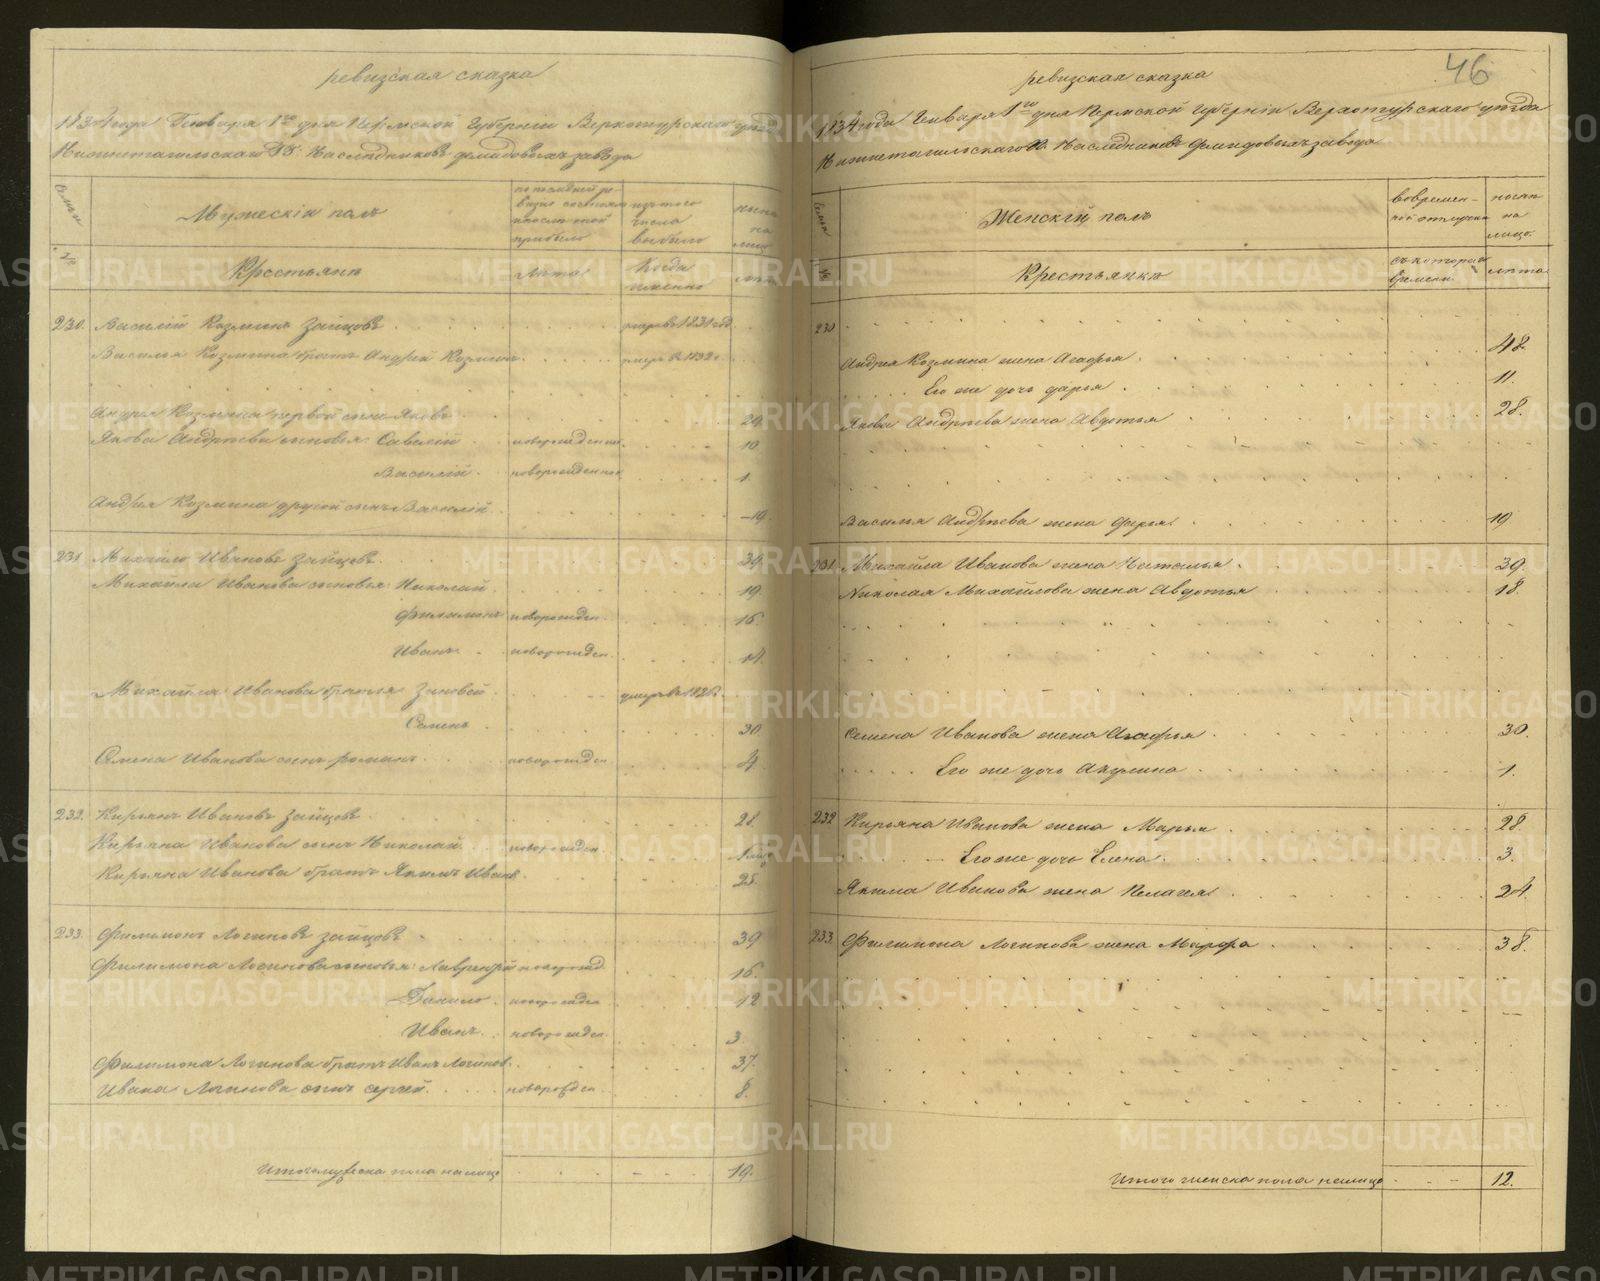 ревизская сказка
1834 года Генваря 1го дня Пермской Губернии Верхотурского уезда
Нижнетагильскаго Гг. Наследниковъ Демидовыхъ завода
Семьи
Мужескій полъ
по последней ре-
визіи состояло
и после той
прибыло
изъ того
числа
выбыло
ныне
на
лицо
№
Крестьяне
Лета
Когда
именно
лета
230. Василій Козминъ Зайцовъ умеръ въ 1831 год
Василья Козмина братъ Андрей Козминъ умеръ в 1832
Андрея Козмина первой сынъ Яковъ 29
Якова Андреева сыновья Савелій новорожденные 10
Василій новорожденной 1.
Андрея Козмина другой сынъ Василій 19.
231 Михайло Ивановъ Зайцовъ 39
Михайла Иванова сыновья Николай 19.
Филимонъ новорожден. 16.
Иванъ новорожден. 14.
Михайла Иванова братья Зиновей умеръ въ 1826
Семенъ 30
Семена Иванова сынъ Романъ новорожден 4
232. Кирьянъ Ивановъ Зайцовъ 28.
Кирьяна Иванова сынъ Николай новорожден.
Кирьяна Иванова братъ Якимъ Иванов. 25.
233. Филимонъ Логиновъ Зайцовъ 39
Филимона Логинова сыновья: Лаврентей новорожд. 16.
Данило новорожден. 12
Иванъ новорожден. 3.
Филимона Логинова братъ Иванъ Логинов. 37.
Ивана Логинова сынъ Сергей новорожден. 8.
Итого мужеска пола налицо 19.
46
ревизская сказка
1834 года Генваря 1го дня Пермской Губерніи Верхотурскаго уезда
Нижнетагильскаго Гг. Наследниковъ Демидовыхъ завода
Семьи
Женскій полъ
во времен-
ной отлучке
ныне
на
лицо.
№
Крестьянки
съ которого
времени
лета
230
Андрея Козмина жена Агафья 48.
Его же дочь Дарья 11.
Якова Андреева жена Авдотья 28.
Василья Андреева жена Дарья 19
231 Михайла Иванова жена Наталья 39.
Николая Михайлова жена Авдотья 18.
Семена Иванова жена Агафья 30.
Его же дочь Акулина 1.
232 Кирьяна Иванова жена Марья 28
Его же дочь Елена 3.
Якима Иванова жена Пелагея 24.
233. Филимона Логинова жена Марфа 38.
Итого женска пола налицо 12.
METRIKI.GASO-URAL.RU